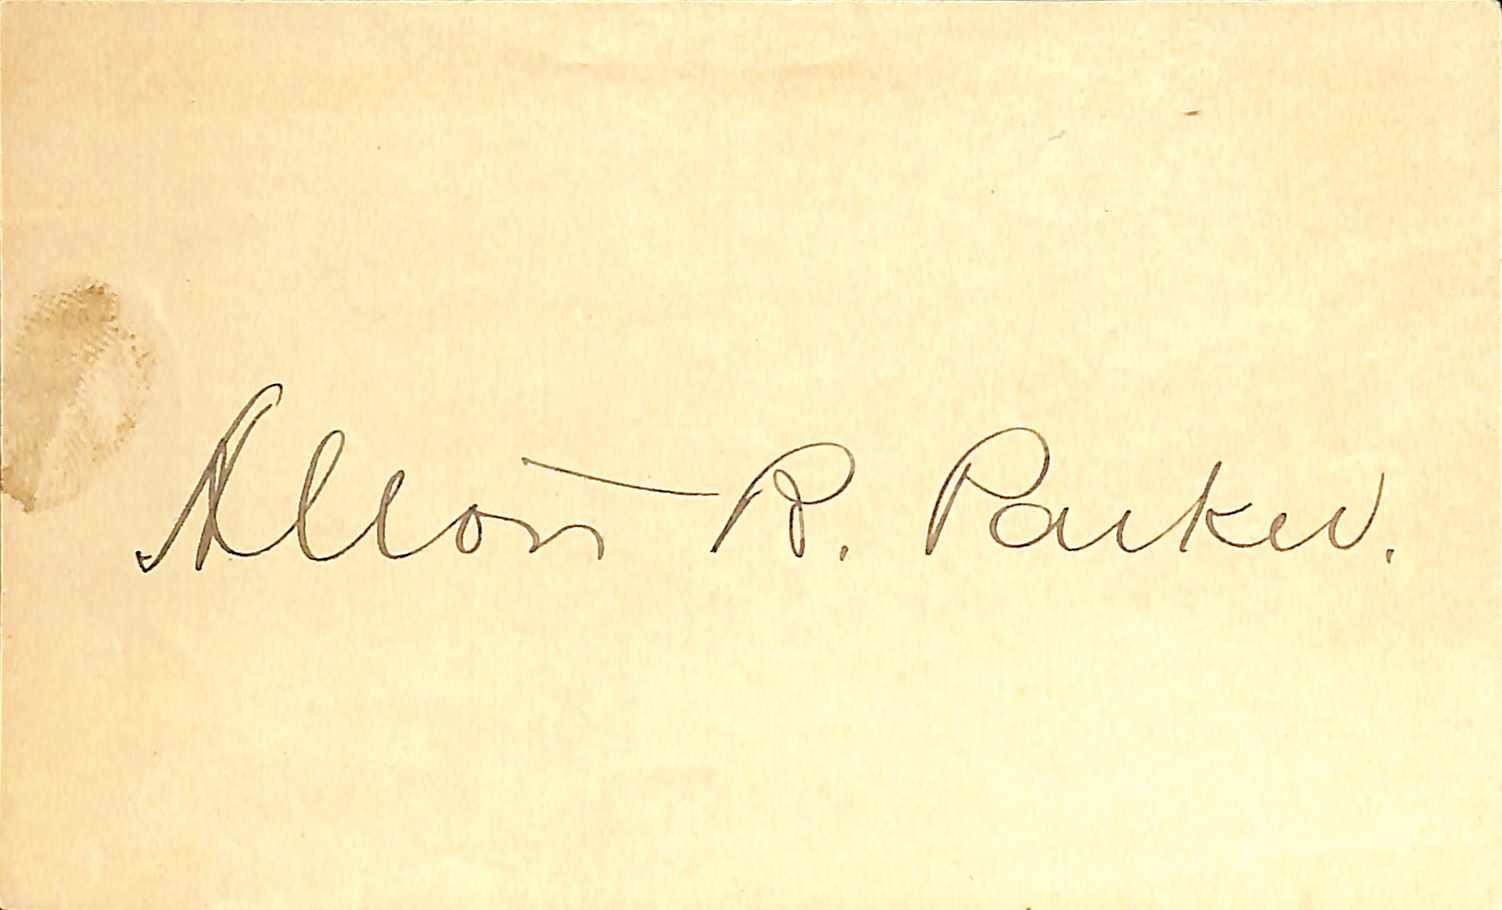 Alton B. Parker.